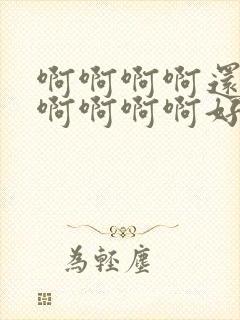 啊啊啊啊還
啊啊啊啊好
為輕塵